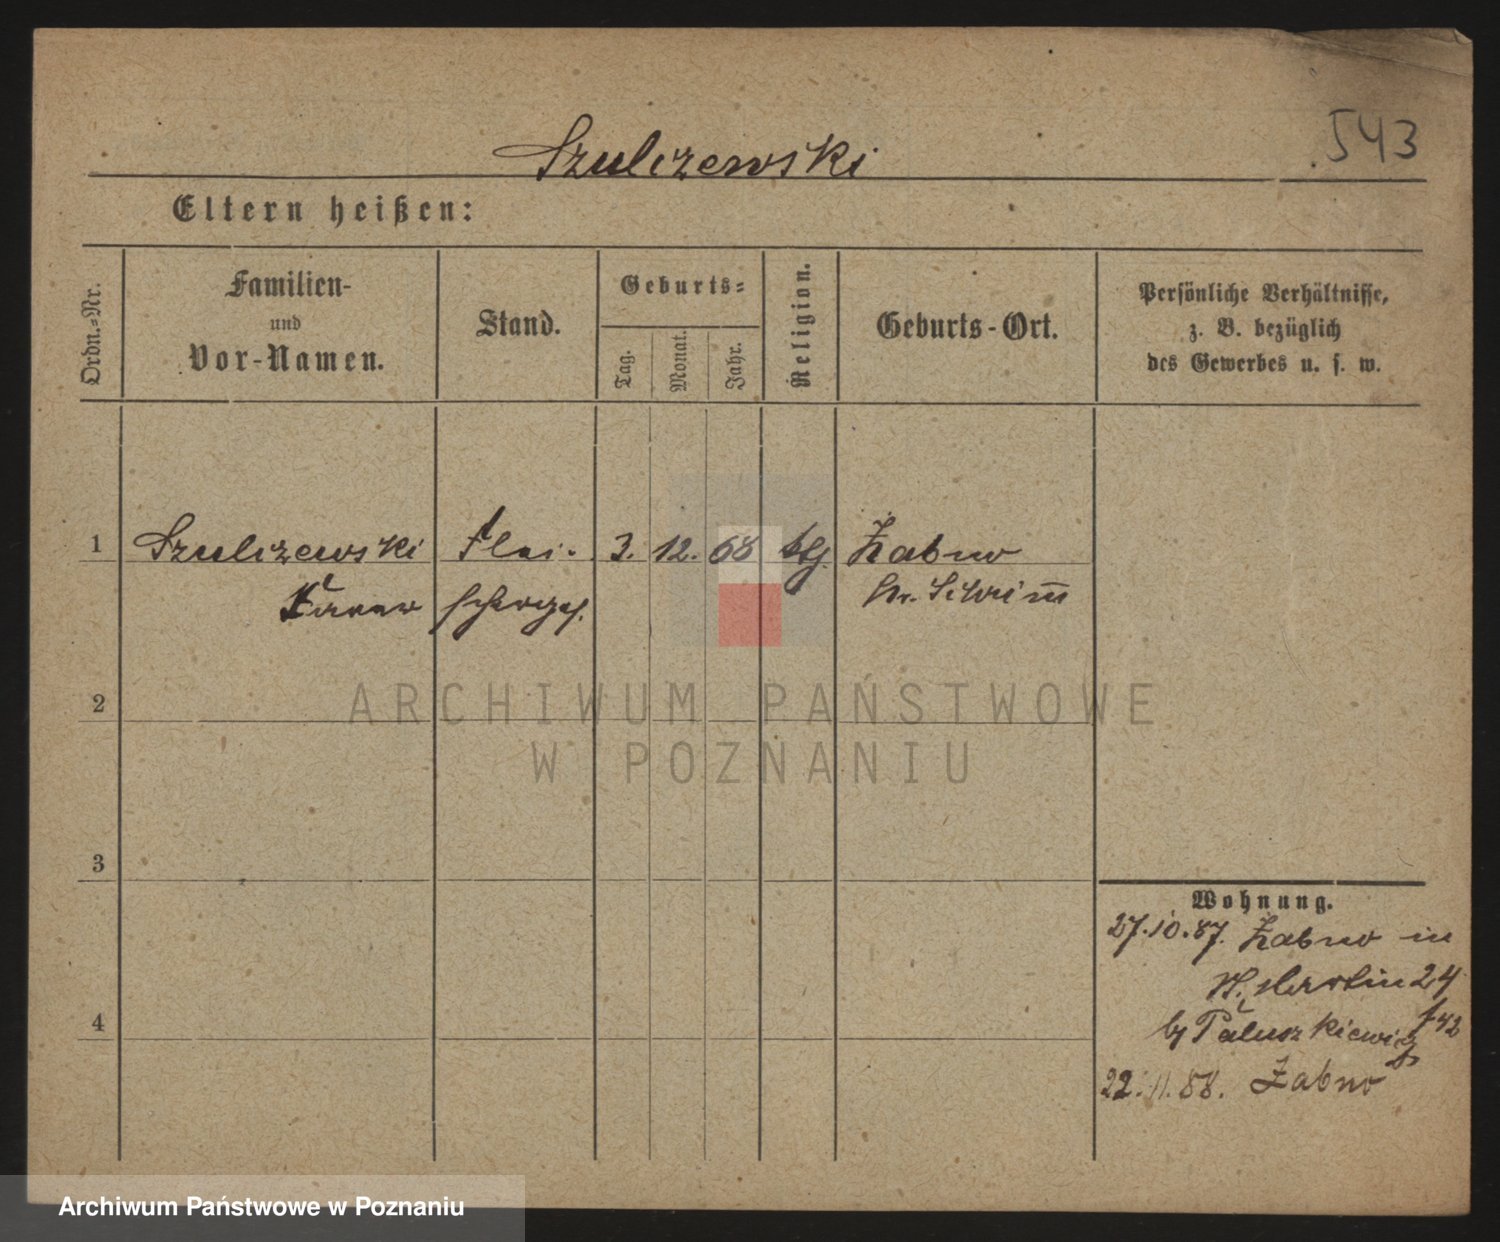 543
Szulczewski
Eltern heißen:
Ordn.-Nr.
Familien-
und
Vor-Namen.
Stand.
Geburts-
Tag.
Monat.
Jahr.
Religion.
Geburts-Ort.
Persönliche Verhältnisse,
z. B. bezüglich
des Gewerbes u. s. w.
1
Szulczewski
Flei-
3.
12.
68
Żabno
schergs.
Kr. Schrimm
2
3
4
Wohnung.
27.10.87. Żabno in
St. Martin 24
by Paluszkiewicz
22.11.88. Żabno
ARCHIWUM PAŃSTWOWE
W POZNANIU
Archiwum Państwowe w Poznaniu